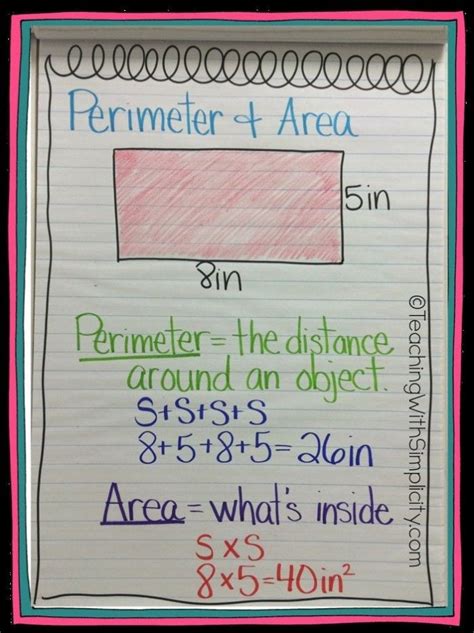 Perimeter & Area
5in
8in
Perimeter = the distance
around an object.
S+S+S+S
8+5+8+5=26in
Area = what's inside
S x S
8x5=40in²
©TeachingWithSimplicity.com